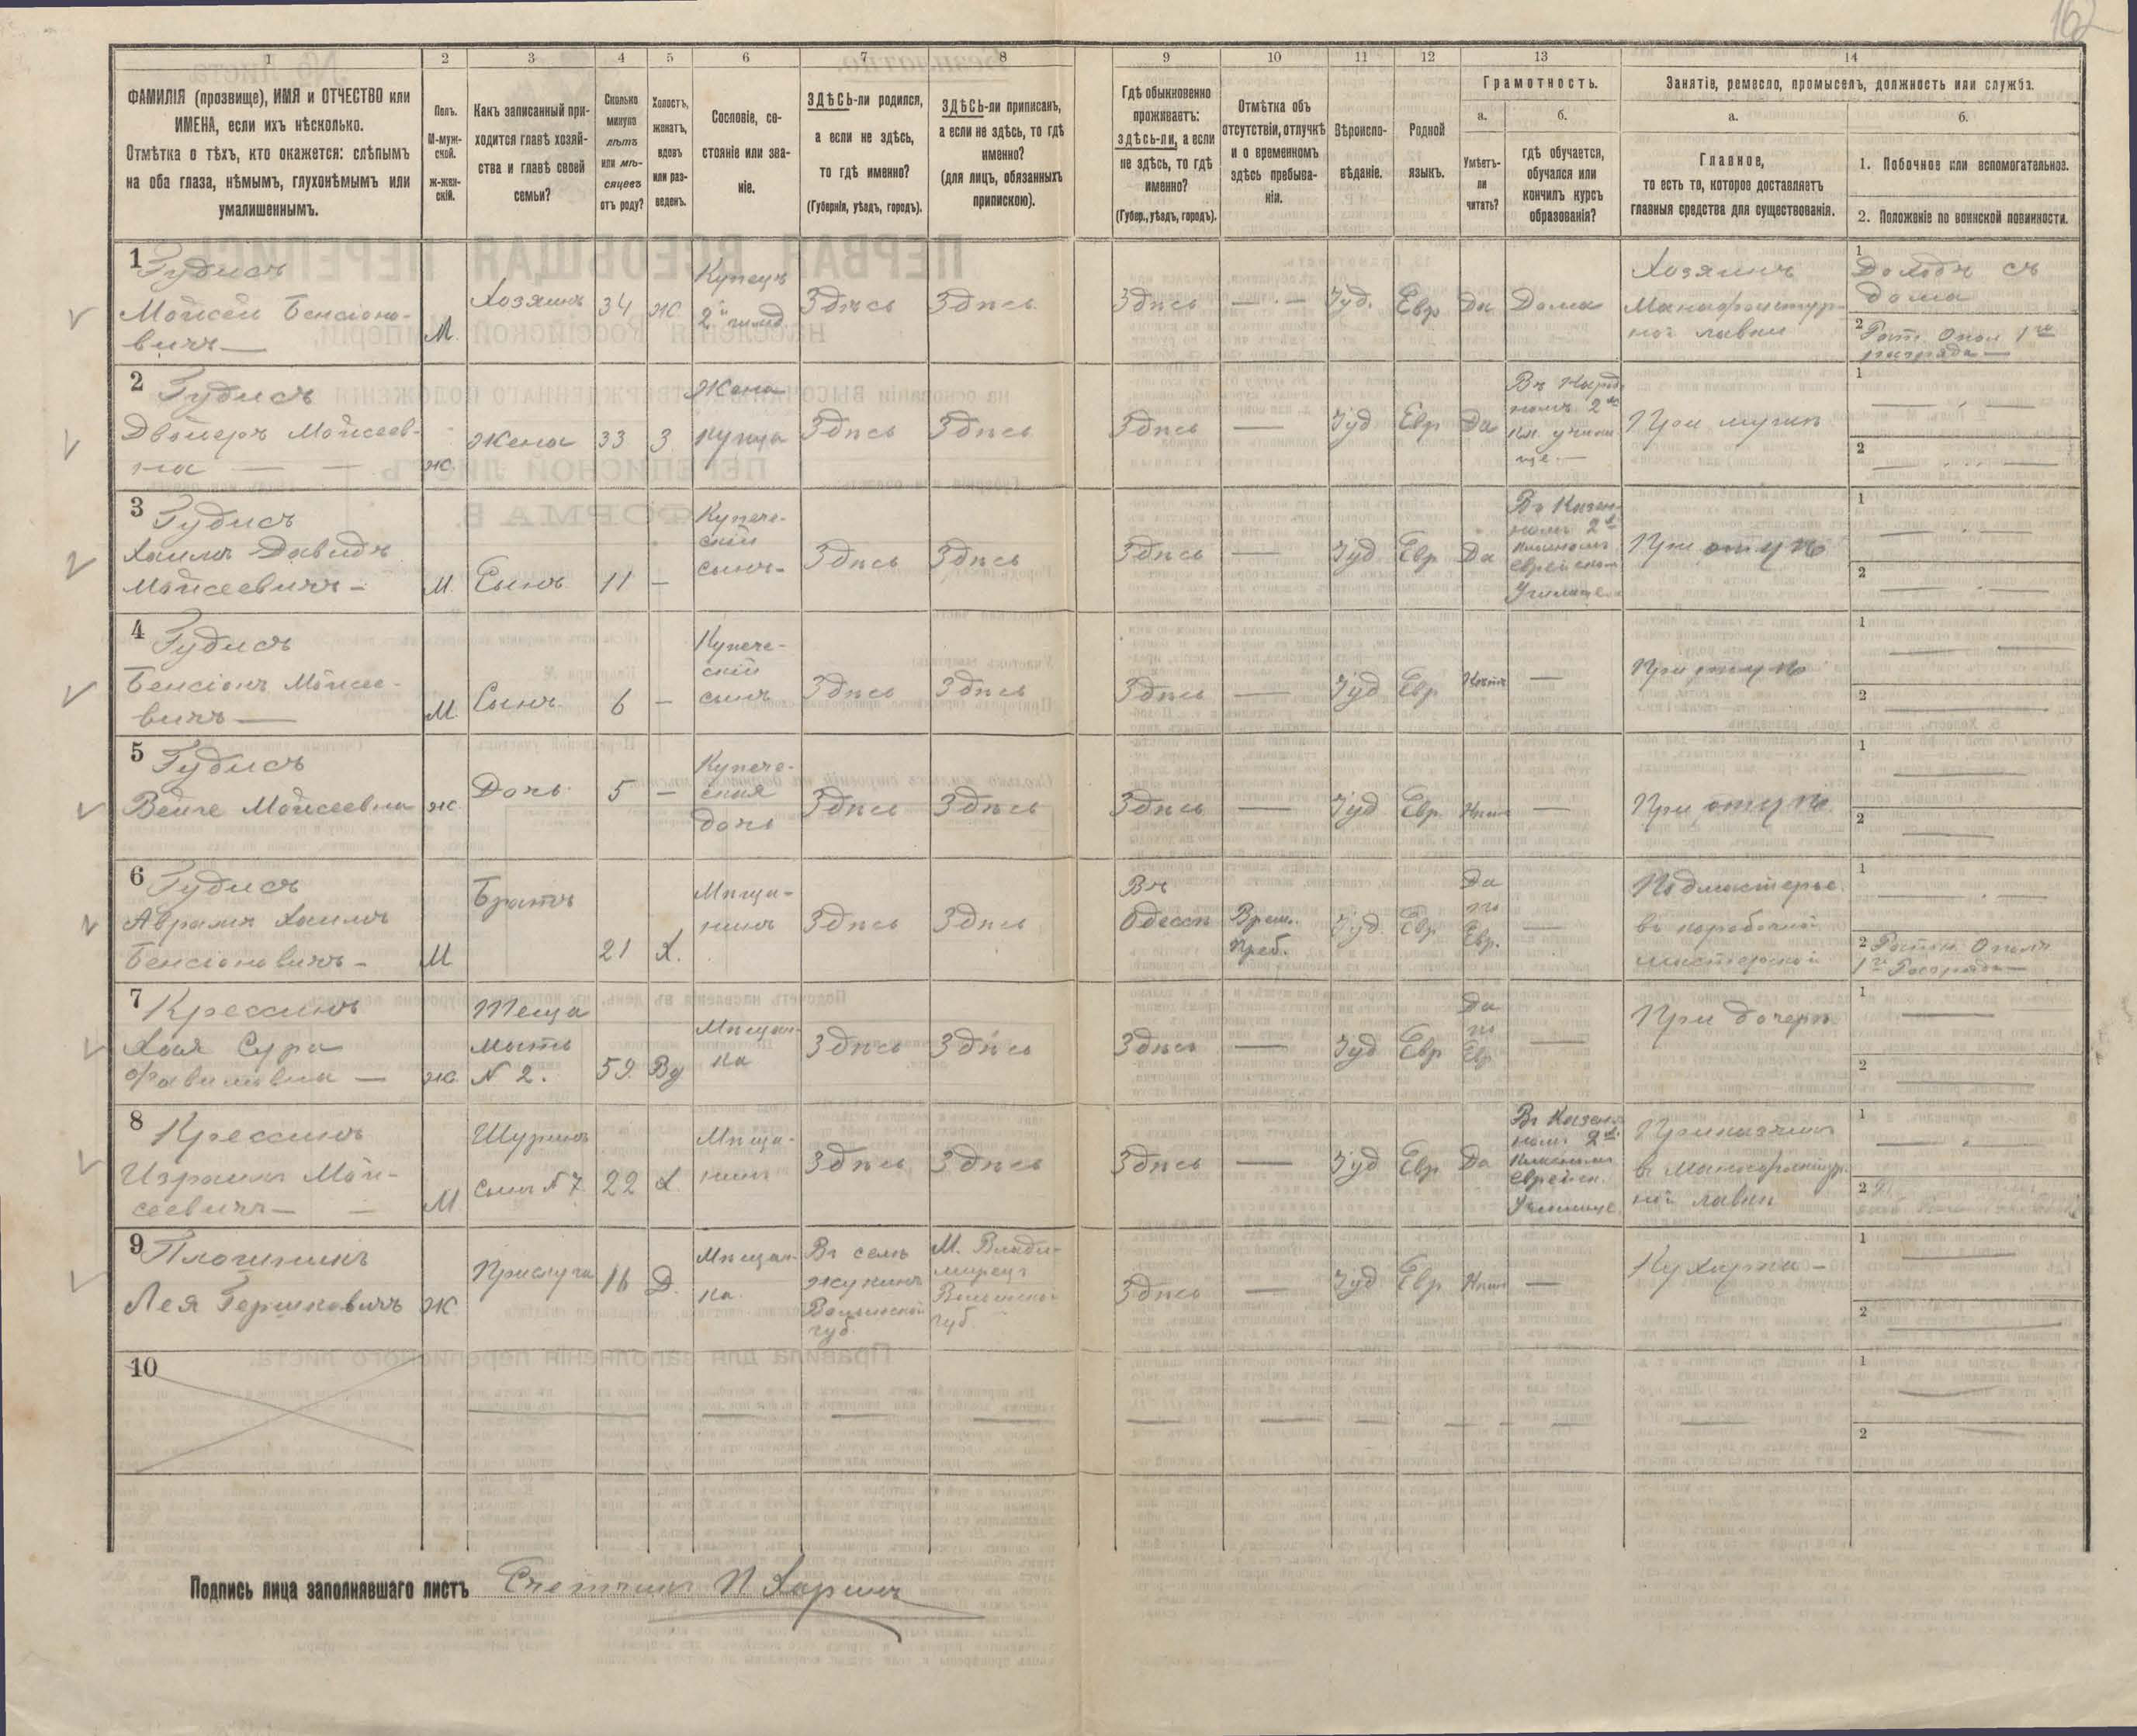 162
1
2
3
4
5
6
7
8
9
10
11
12
13
14
ФАМИЛІЯ (прозвище), ИМЯ и ОТЧЕСТВО или
ИМЕНА, если ихъ нѣсколько.
Отмѣтка о тѣхъ, кто окажется: слѣпымъ
на оба глаза, нѣмымъ, глухонѣмымъ или
умалишеннымъ.
Полъ.
М-муж-
ской.
ж-жен-
скій.
Какъ записанный при-
ходится главѣ хозяй-
ства и главѣ своей
семьи?
Сколько
минуло
лѣтъ
или мѣ-
сяцевъ
отъ роду?
Холостъ,
женатъ,
вдовъ
или раз-
веденъ.
Сословіе, со-
стояніе или зва-
ніе.
ЗДѢСЬ-ли родился,
а если не здѣсь,
то гдѣ именно?
(Губернія, уѣздъ, городъ).
ЗДѢСЬ-ли приписанъ,
а если не здѣсь, то гдѣ
именно?
(для лицъ, обязанныхъ
припискою).
Гдѣ обыкновенно
проживаетъ:
здѣсь-ли, а если
не здѣсь, то гдѣ
именно?
(Губер., уѣздъ, городъ).
Отмѣтка объ
отсутствіи, отлучкѣ
и о временномъ
здѣсь пребыва-
ніи.
Вѣроиспо-
вѣданіе.
Родной
языкъ.
Грамотность.
а.
Умѣетъ-
ли
читать?
б.
гдѣ обучается,
обучался или
кончилъ курсъ
образованія?
Занятіе, ремесло, промыселъ, должность или служба.
а.
Главное,
то есть то, которое доставляетъ
главныя средства для существованія.
б.
1. Побочное или вспомогательное.
2. Положеніе по воинской повинности.
1 Гудисъ
Мойсей Бенсіоно-
вичъ
М.
Хозяинъ
34
Ж.
Купецъ
2й гильд
Здѣсь
Здѣсь
Здѣсь
Іуд.
Евр
Да
Дома
Хозяинъ
Манафактур-
ной лавки
1 Доходъ съ
дома
2 Рат. Опол 1го
разряда
2 Гудисъ
Двойера Мойсеев-
на
ж.
Жена
33
З
Жена
купца
Здѣсь
Здѣсь
Здѣсь
Іуд
Евр
Да
При мужѣ
1
2
3 Гудисъ
Хаимъ Давидъ
Мойсеевичъ
М.
Сынъ
11
Купече-
скій
сынъ
Здѣсь
Здѣсь
Здѣсь
Іуд
Евр
Да
В Казен-
номъ 2х
класномъ
еврейском
Училище
При отцѣ
1
2
4 Гудисъ
Бенсіонъ Мойсее-
вичъ
М.
Сынъ
6
Купече-
скій
сынъ
Здѣсь
Здѣсь
Здѣсь
Іуд
Евр
Нѣтъ
При отцѣ
1
2
5 Гудисъ
Вейге Мойсеевна
ж.
Дочь
5
Купече-
ская
дочь
Здѣсь
Здѣсь
Здѣсь
Іуд
Евр
Нѣтъ
При отцѣ
1
2
6 Гудисъ
Аврамъ Хаимъ
Бенсіоновичъ
М
Братъ
21
Х.
Мѣща-
нинъ
Здѣсь
Здѣсь
Въ
Одессѣ
Врем.
Преб.
Іуд.
Евр
Да
по
Евр.
Подмастерье
въ коробочной
мастерской
1
2 Ратн. Опол
1го Разряда
7 Крессинъ
Хая Сура
ж.
Теща
мать
N 2.
59
Вд
Мѣщан-
ка
Здѣсь
Здѣсь
Здѣсь
Іуд
Евр
Да
по
Евр
При дочери
1
2
8 Крессинъ
Израиль Мой-
сеевичъ
М
Шуринъ
Сынъ N 7
22
Х.
Мѣща-
нинъ
Здѣсь
Здѣсь
Здѣсь
Іуд
Евр
Да
В Казен-
ном. 2х
Класном
еврейск.
Училище
Приказчик
в манафактур-
ной лавки
1
2
9
Лея Гершковичъ
Ж.
Прислуга
16
Д.
Мѣщан-
ка
Въ селѣ
Волынской
губ.
М. Влади-
мирец
Волынск
губ
Здѣсь
Іуд
Евр
Нѣтъ
Кухарка
1
2
10
1
2
Подпись лица заполнявшаго листъ Счетчикъ П. Харинъ